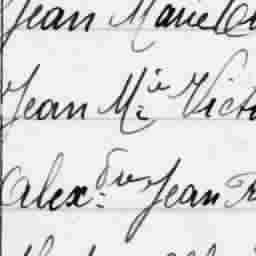 Jean Marie
Jean M.ie Vict
Alex.dre Jean Fr